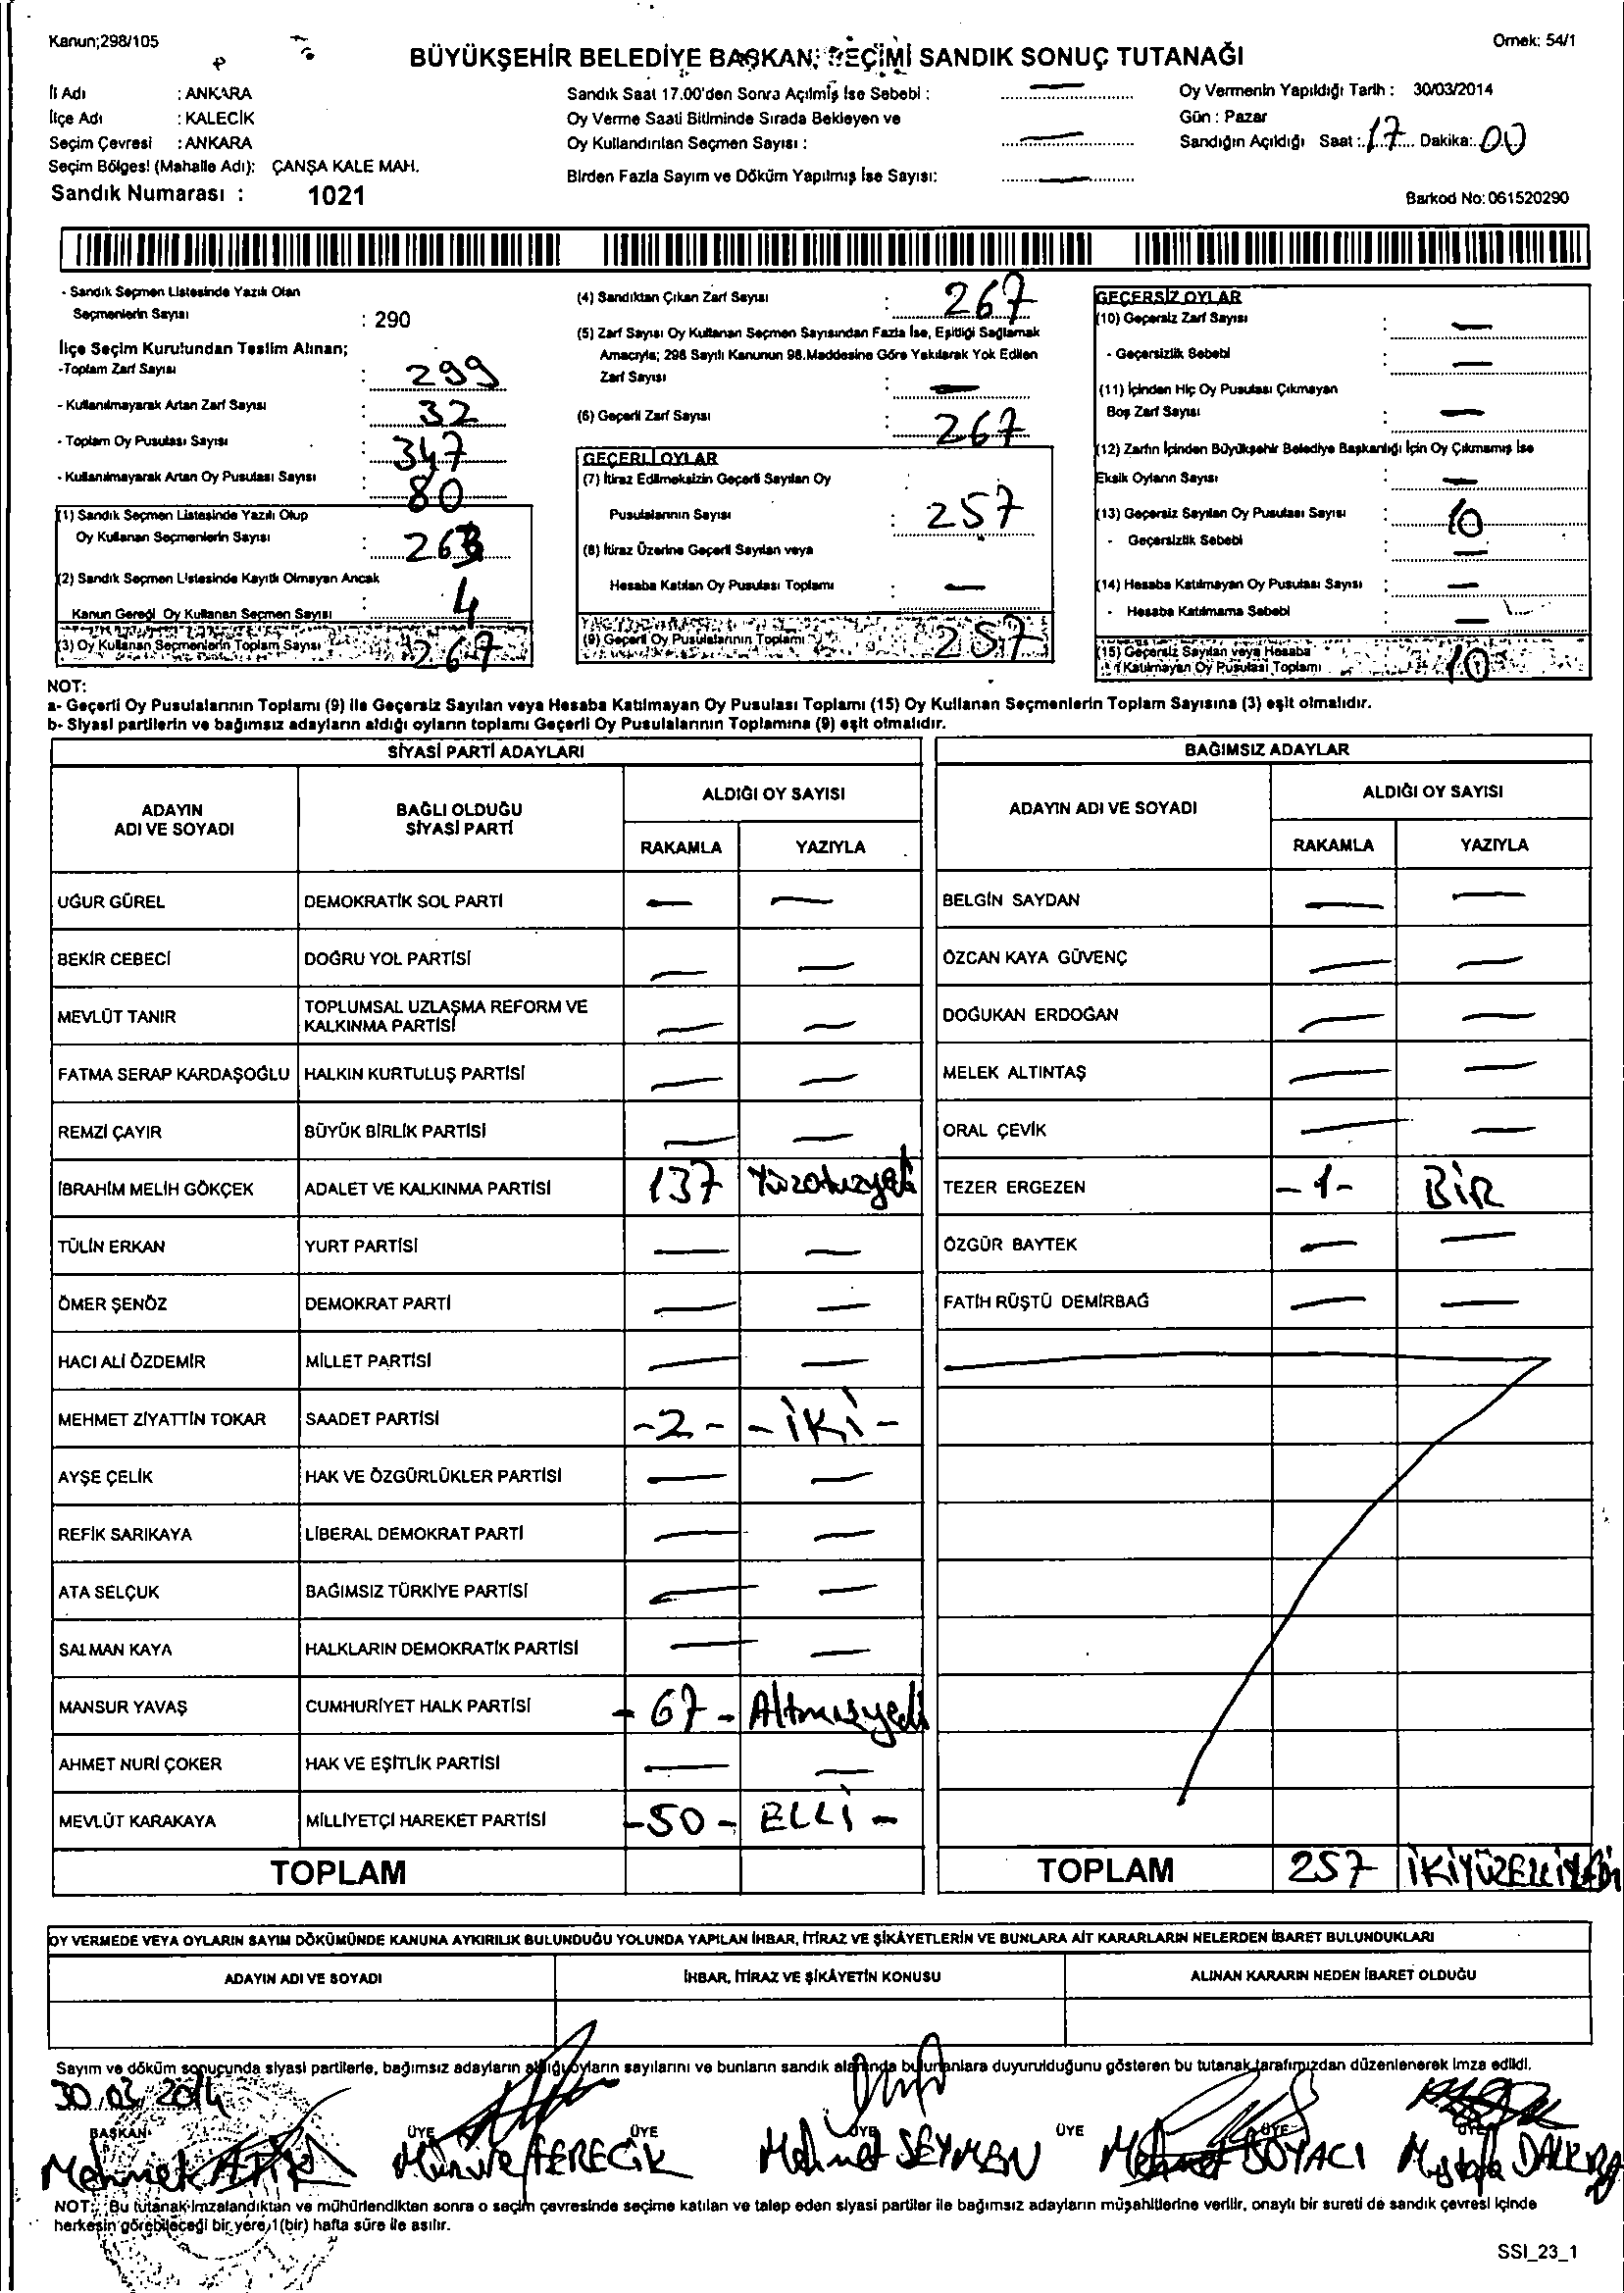 Kanun;298/105
Örnek: 54/1
BÜYÜKŞEHİR BELEDİYE BAŞKANI SEÇİMİ SANDIK SONUÇ TUTANAĞI
İl Adı : ANKARA
İlçe Adı : KALECİK
Seçim Çevresi : ANKARA
Seçim Bölgesi (Mahalle Adı): ÇANŞA KALE MAH.
Sandık Numarası : 1021
Sandık Saat 17.00'den Sonra Açılmış İse Sebebi : —
Oy Verme Saati Bitiminde Sırada Bekleyen ve
Oy Kullandırılan Seçmen Sayısı : —
Birden Fazla Sayım ve Döküm Yapılmış İse Sayısı: —
Oy Vermenin Yapıldığı Tarih : 30/03/2014
Gün : Pazar
Sandığın Açıldığı Saat : 17 Dakika: 00
Barkod No: 061520290
- Sandık Seçmen Listesinde Yazılı Olan
Seçmenlerin Sayısı : 290
İlçe Seçim Kurulundan Teslim Alınan;
-Toplam Zarf Sayısı : 299
- Kullanılmayarak Artan Zarf Sayısı : 32
- Toplam Oy Pusulası Sayısı : 347
- Kullanılmayarak Artan Oy Pusulası Sayısı : 80
(1) Sandık Seçmen Listesinde Yazılı Olup
Oy Kullanan Seçmenlerin Sayısı : 263
(2) Sandık Seçmen Listesinde Kayıtlı Olmayan Ancak
Kanun Gereği Oy Kullanan Seçmen Sayısı : 4
(3) Oy Kullanan Seçmenlerin Toplam Sayısı 267
(4) Sandıktan Çıkan Zarf Sayısı : 267
(5) Zarf Sayısı Oy Kullanan Seçmen Sayısından Fazla İse, Eşitliği Sağlamak
Amacıyla; 298 Sayılı Kanunun 98.Maddesine Göre Yakılarak Yok Edilen
Zarf Sayısı : —
(6) Geçerli Zarf Sayısı : 267
GEÇERLİ OYLAR
(7) İtiraz Edilmeksizin Geçerli Sayılan Oy
Pusulalarının Sayısı : 257
(8) İtiraz Üzerine Geçerli Sayılan veya
Hesaba Katılan Oy Pusulası Toplamı : —
(9) Geçerli Oy Pusulalarının Toplamı 257
GEÇERSİZ OYLAR
(10) Geçersiz Zarf Sayısı : —
- Geçersizlik Sebebi : —
(11) İçinden Hiç Oy Pusulası Çıkmayan
Boş Zarf Sayısı : —
(12) Zarfın İçinden Büyükşehir Belediye Başkanlığı İçin Oy Çıkmamış İse
Eksik Oyların Sayısı : —
(13) Geçersiz Sayılan Oy Pusulası Sayısı : 10
- Geçersizlik Sebebi : —
(14) Hesaba Katılmayan Oy Pusulası Sayısı : —
- Hesaba Katılmama Sebebi : —
(15) Geçersiz Sayılan veya Hesaba
Katılmayan Oy Pusulası Toplamı 10
NOT:
a- Geçerli Oy Pusulalarının Toplamı (9) ile Geçersiz Sayılan veya Hesaba Katılmayan Oy Pusulası Toplamı (15) Oy Kullanan Seçmenlerin Toplam Sayısına (3) eşit olmalıdır.
b- Siyasi partilerin ve bağımsız adayların aldığı oyların toplamı Geçerli Oy Pusulalarının Toplamına (9) eşit olmalıdır.
SİYASİ PARTİ ADAYLARI
ADAYIN ADI VE SOYADI
BAĞLI OLDUĞU SİYASİ PARTİ
ALDIĞI OY SAYISI
RAKAMLA YAZIYLA
UĞUR GÜREL DEMOKRATİK SOL PARTİ — —
BEKİR CEBECİ DOĞRU YOL PARTİSİ — —
MEVLÜT TANIR TOPLUMSAL UZLAŞMA REFORM VE KALKINMA PARTİSİ — —
FATMA SERAP KARDAŞOĞLU HALKIN KURTULUŞ PARTİSİ — —
REMZİ ÇAYIR BÜYÜK BİRLİK PARTİSİ — —
İBRAHİM MELİH GÖKÇEK ADALET VE KALKINMA PARTİSİ 137 Yüzotuzyedi
TÜLİN ERKAN YURT PARTİSİ — —
ÖMER ŞENÖZ DEMOKRAT PARTİ — —
HACI ALİ ÖZDEMİR MİLLET PARTİSİ — —
MEHMET ZİYATTİN TOKAR SAADET PARTİSİ -2- -İKİ-
AYŞE ÇELİK HAK VE ÖZGÜRLÜKLER PARTİSİ — —
REFİK SARIKAYA LİBERAL DEMOKRAT PARTİ — —
ATA SELÇUK BAĞIMSIZ TÜRKİYE PARTİSİ — —
SALMAN KAYA HALKLARIN DEMOKRATİK PARTİSİ — —
MANSUR YAVAŞ CUMHURİYET HALK PARTİSİ - 67 - Altmışyedi
AHMET NURİ ÇOKER HAK VE EŞİTLİK PARTİSİ — —
MEVLÜT KARAKAYA MİLLİYETÇİ HAREKET PARTİSİ -50- ELLİ -
TOPLAM
BAĞIMSIZ ADAYLAR
ADAYIN ADI VE SOYADI
ALDIĞI OY SAYISI
RAKAMLA YAZIYLA
BELGİN SAYDAN — —
ÖZCAN KAYA GÜVENÇ — —
DOĞUKAN ERDOĞAN — —
MELEK ALTINTAŞ — —
ORAL ÇEVİK — —
TEZER ERGEZEN -1- BİR
ÖZGÜR BAYTEK — —
FATİH RÜŞTÜ DEMİRBAĞ — —
TOPLAM 257 İKİYÜZELLİYEDİ
OY VERMEDE VEYA OYLARIN SAYIM DÖKÜMÜNDE KANUNA AYKIRILIK BULUNDUĞU YOLUNDA YAPILAN İHBAR, İTİRAZ VE ŞİKÂYETLERİN VE BUNLARA AİT KARARLARIN NELERDEN İBARET BULUNDUKLARI
ADAYIN ADI VE SOYADI İHBAR, İTİRAZ VE ŞİKÂYETİN KONUSU ALINAN KARARIN NEDEN İBARET OLDUĞU
Sayım ve döküm sonucunda siyasi partilerle, bağımsız adayların aldığı oyların sayılarını ve bunların sandık alanında bulunanlara duyurulduğunu gösteren bu tutanak tarafımızdan düzenlenerek imza edildi.
30.03.2014
BAŞKAN ÜYE ÜYE ÜYE ÜYE ÜYE ÜYE
Mehmet Münire Mehmet SEYMEN Mehmet SOYACI Mustafa
NOT: Bu tutanak imzalandıktan ve mühürlendikten sonra o seçim çevresinde seçime katılan ve talep eden siyasi partiler ile bağımsız adayların müşahitlerine verilir, onaylı bir sureti de sandık çevresi içinde
herkesin görebileceği bir yere 1(bir) hafta süre ile asılır.
SSI_23_1